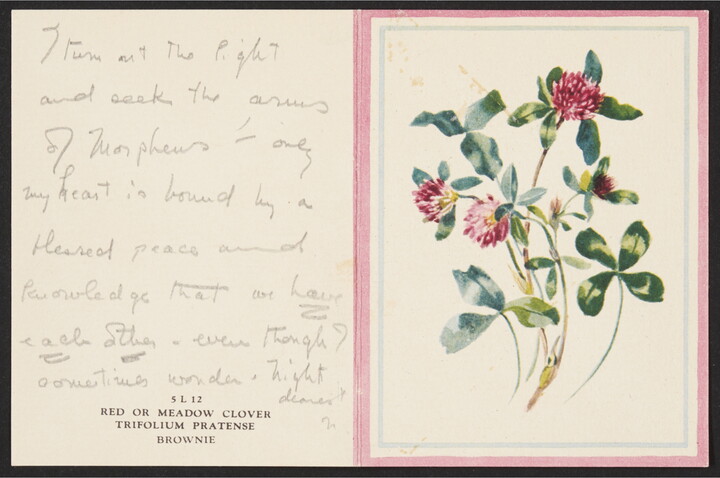 I turn out the light
and seek the arms
of Morpheus - only
my heart is bound by a
blessed peace and
knowledge that we have
each other - even though I
sometimes wonder. Night
dearest
5 L 12
RED OR MEADOW CLOVER
TRIFOLIUM PRATENSE
BROWNIE